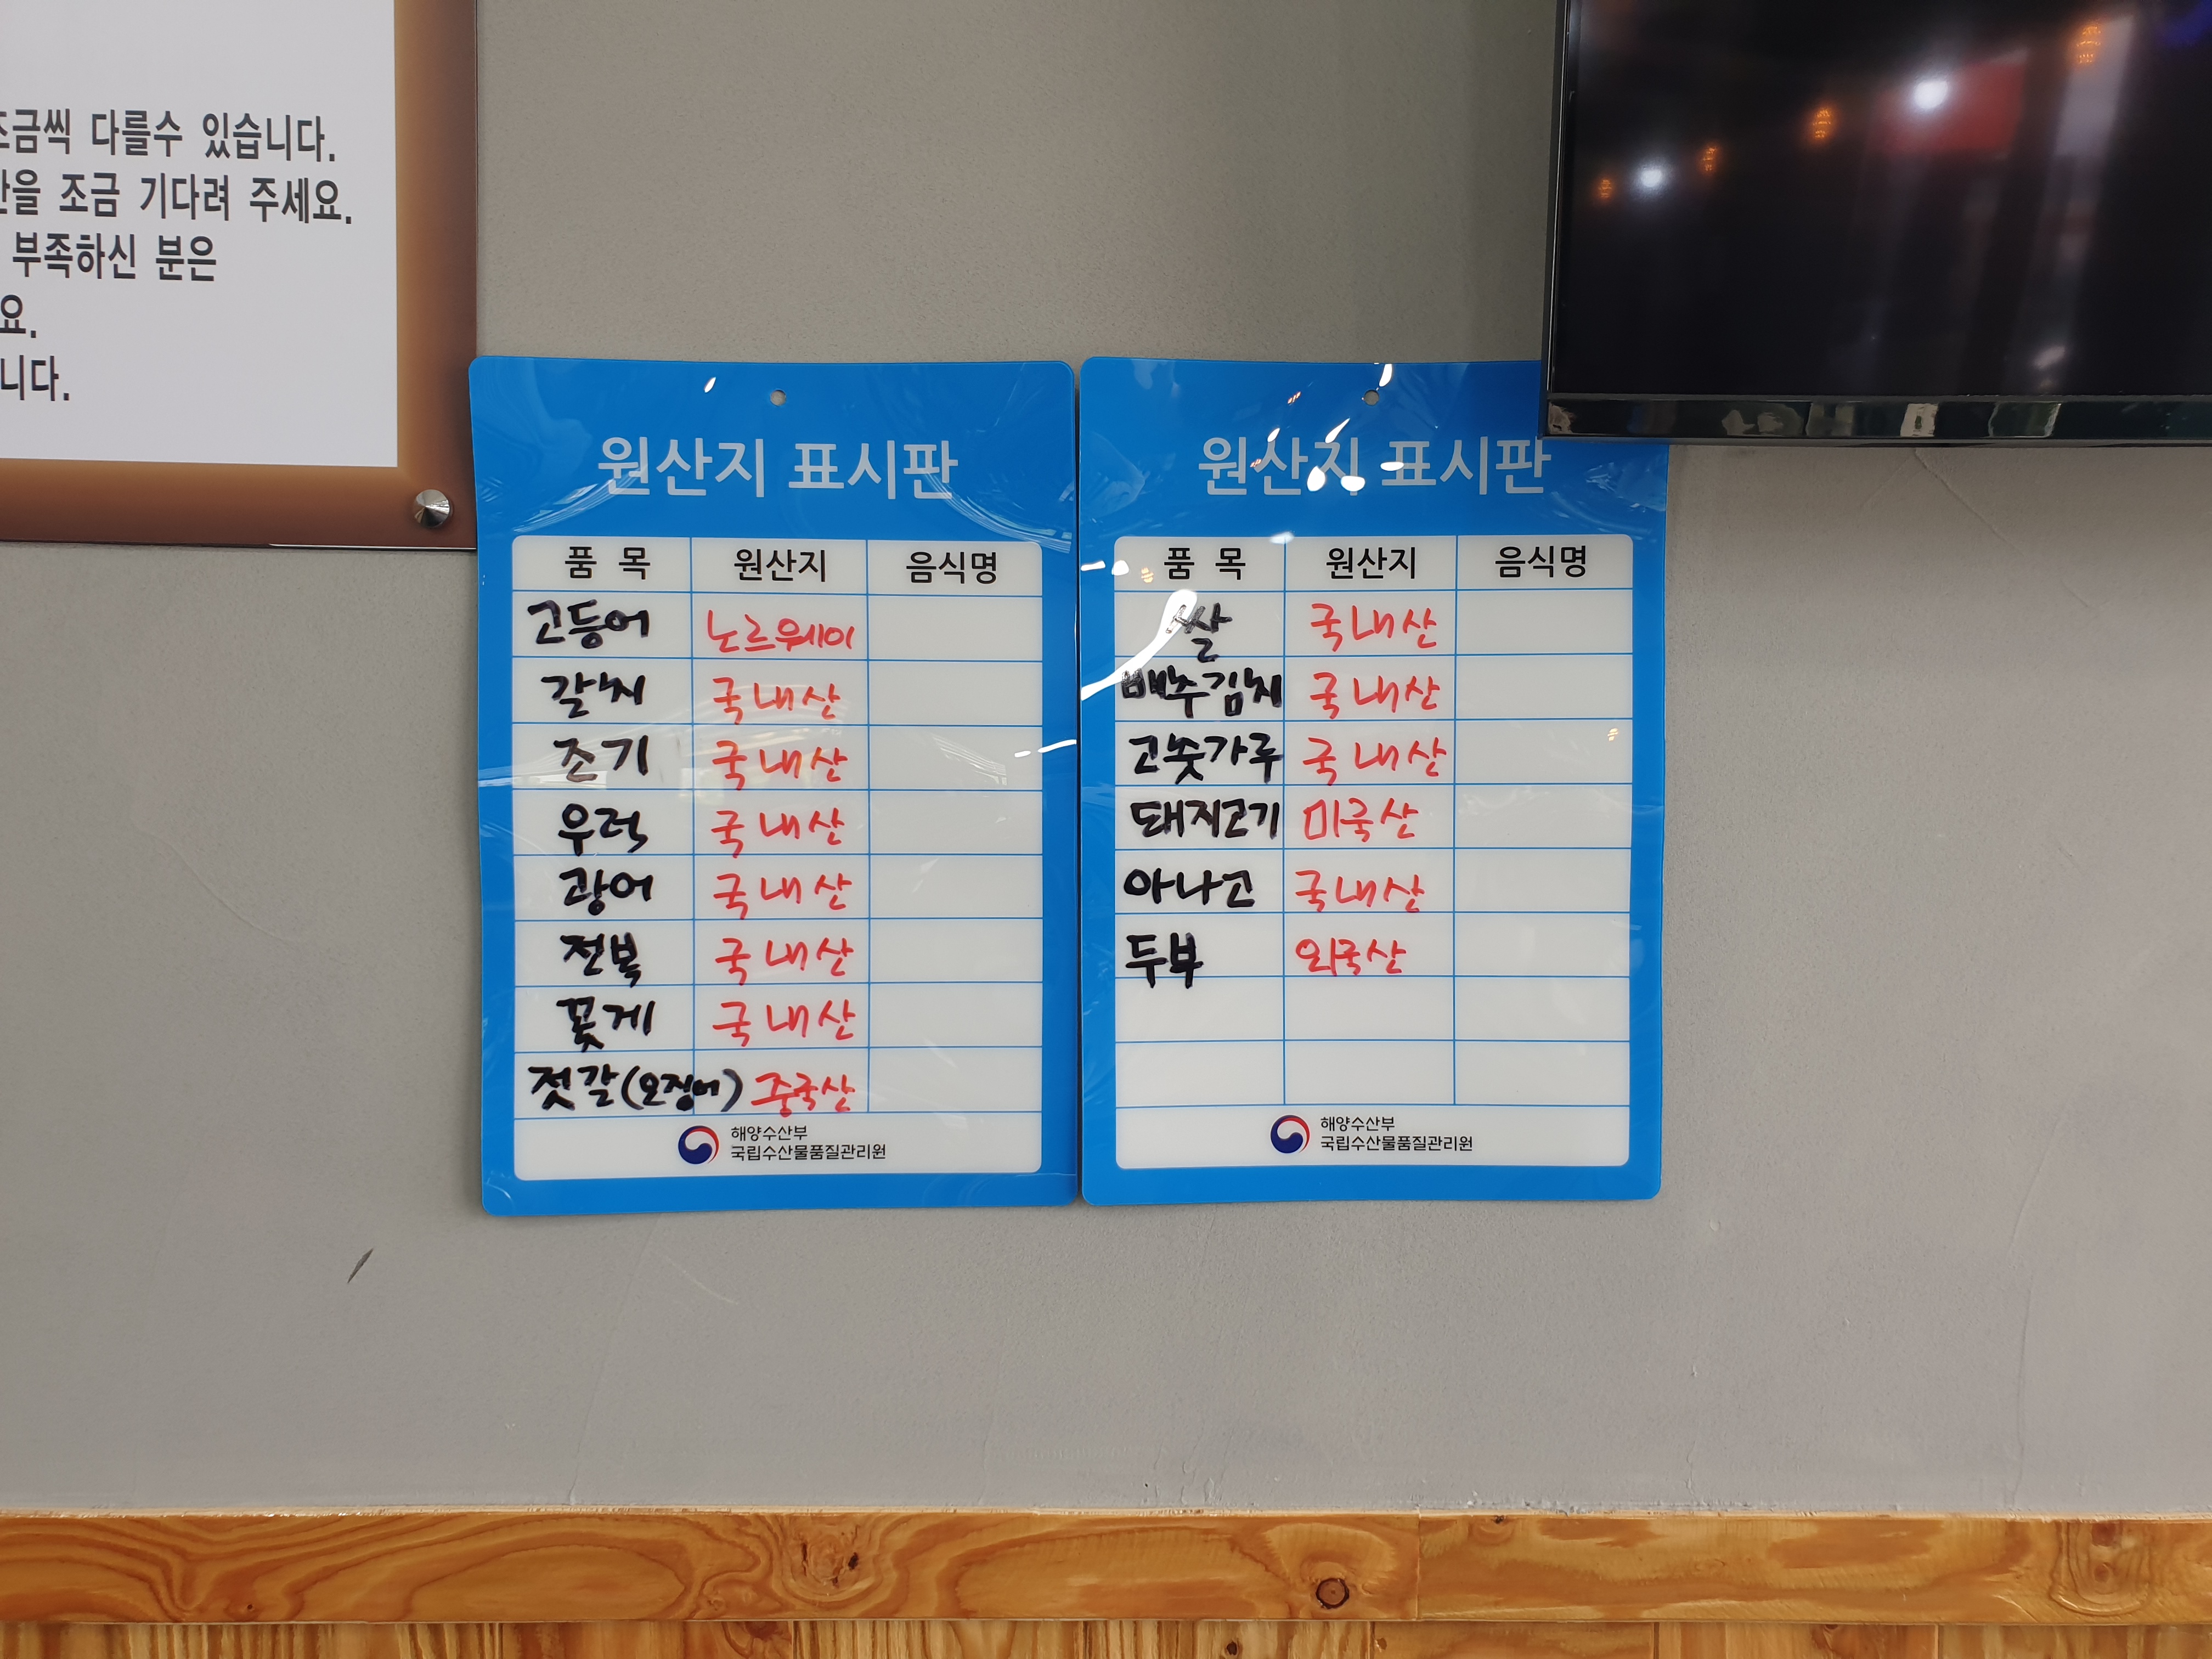 조금씩 다를수 있습니다.
조금 기다려 주세요.
부족하신 분은
요.
니다.
원산지 표시판
품 목 원산지 음식명
고등어 노르웨이
갈치 국내산
조기 국내산
우럭 국내산
광어 국내산
전복 국내산
꽃게 국내산
젓갈(오징어) 중국산
해양수산부
국립수산물품질관리원
원산지 표시판
품 목 원산지 음식명
쌀 국내산
배추김치 국내산
고춧가루 국내산
돼지고기 미국산
아나고 국내산
두부 외국산
해양수산부
국립수산물품질관리원